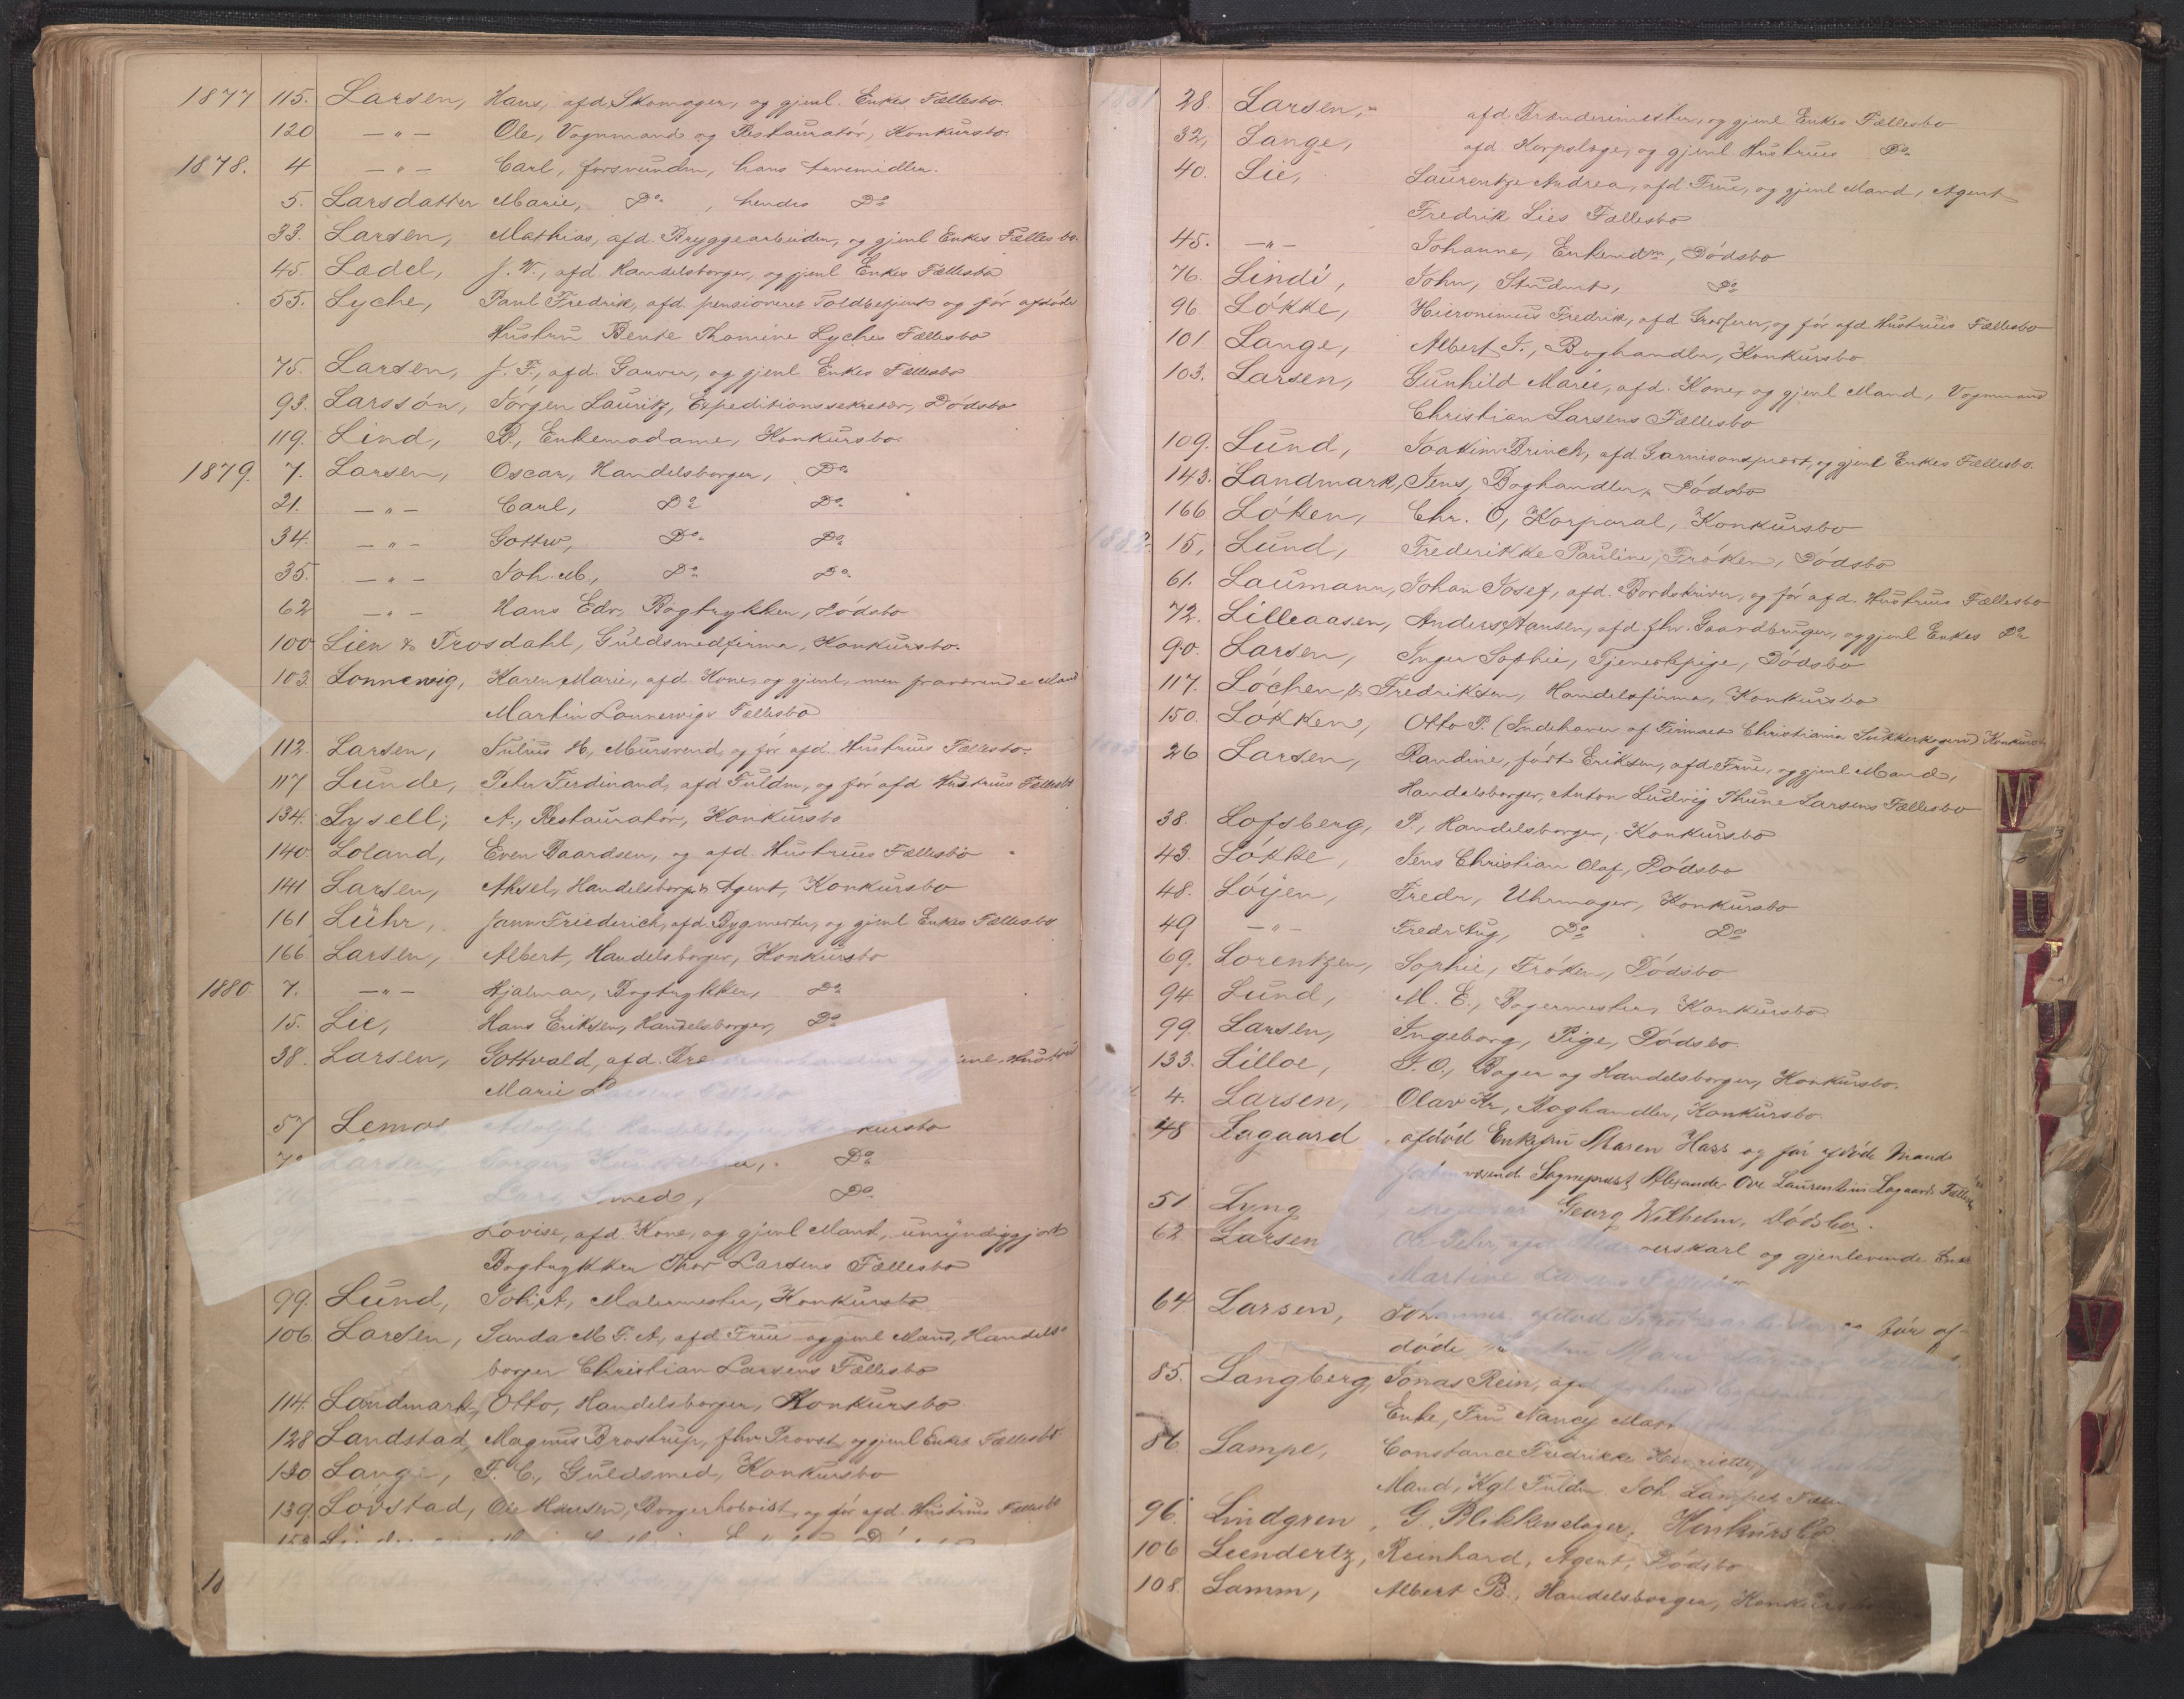 1877 115. Larsen, Hans, afd. Skomager, og gjenl. Enkes Fællesbo.
120 — " — Ole, Vognmand og Restauratör, Konkursbo
1878. 4 — " — Carl, forsvunden, hans Arvemidler.
5. Larsdatter Marie, Do , hendes Do
33. Larsen, Mathias, afd. Bryggearbeider, og gjenl. Enkes Fællesbo.
45. Lædel, J. W., afd. Handelsborger, og gjenl Enkes Fællesbo
55. Lyche, Paul Fredrik, afd. pensioneret Toldbetjent og før afdöde
Hustru Bente Thomine Lyches Fællesbo
75. Larsen, J. F., afd. Garver, og gjenl. Enkes Fællesbo
93. Larssön, Jörgen Lauritz, Expeditionssekretær, Dödsbo
119. Lind, B., Enkemadame, Konkursbo
1879. 7. Larsen, Oscar, Handelsborger, Do
21. — " — Carl, Do Do
34. — " — Gottw, Do Do
35. — " — Joh. M., Do Do
62 — " — Hans Edv, Bogtrykker, Dödsbo
100 Lien & Trosdahl, Guldsmedfirma, Konkursbo.
103 Lonnewig, Karen Marie, afd. Kone, og gjenl, men fraværende Mand
Martin Lonnewigs Fællesbo
112. Larsen, Julius H, Mursvend, og før afd. Hustrues Fællesbo.
117 Lunde, Peter Ferdinand, afd Fuldm, og før afd Hustrues Fællesbo
134. Lysell, A., Restauratör, Konkursbo
140 Loland, Even Baardsen, og afd. Hustrues Fællesbo
141 Larsen, Aksel, Handelsborg. & Agent, Konkursbo
161 Lühr, Jann Friederich, afd. Bygmester, og gjenl Enkes Fællesbo
166. Larsen, Albert, Handelsborger, Konkursbo
1880 7. — " — Hjalmar, Bogtrykker, Do
15. Lie, Hans Eriksen, Handelsborger, Do
38. Larsen, Gottvald, afd. og gjenl. Hustru
Marie Larsens
57 Adolph, Handelsborger, Konkursbo
Larsen Do
— " — Lars, Smed, Do
Lovise, afd. Kone, og gjenl Mand, umyndiggjort
Bogtrykker Thor Larsens Fællesbo
99. Lund, Joh. A, Malermester, Konkursbo
106 Larsen, Sanda M. F. A, afd Frue og gjenl Mand, Handels-
borger Christian Larsens Fællesbo
114. Landmark, Otto, Handelsborger, Konkursbo
128 Landstad, Magnus Brostrup, fhv Provst, og gjenl Enkes Fællesbo
130 Lange, F. C., Guldsmed, Konkursbo
139. Lövstad, Ole Hansen, Borgerhoboist, og før afd. Hustrues Fællesbo
18
1881 28. Larsen, afd. Brænderimester, og gjenl Enkes Fællesbo
32, Lange, afd. Korpslæge, og gjenl Hustrues Do
40. Lie, Laurentze Andrea, afd Frue, og gjenl Mand, Agent
Fredrik Lies Fællesbo
45. — " — Johanne, Enkemdm, Dödsbo
76. Lindi, John, Student, Do
96. Lökke, Hieronimus Fredrik, afd Grosserer, og før afd Hustrues Fællesbo
101 Lange, Albert J., Boghandler, Konkursbo
103. Larsen, Gunhild Marie, afd. Kone, og gjenl Mand, Vognmand
Christian Larsens Fællesbo
109. Lund, Joakim Brinch, afd. Garnisonspræst, og gjenl Enkes Fællesbo.
143. Landmark, Jens, Boghandler, Dödsbo
166. Löken, Chr. O, Korporal, Konkursbo
1882. 15, Lund, Frederikke Pauline, Fröken, Dödsbo
61. Laumann, Johan Josef, afd. Bordskriver, og før afd. Hustrues Fællesbo
72. Lilleaasen, Anders Hansen, afd. fhv. Gaardbruger, og gjenl Enkes Do
90. Larsen, Inger Sophie, Tjenestepige, Dödsbo
117. Löchen & Fredriksen, Handelsfirma, Konkursbo
150. Lökken, Otto P. (Indehaver af Firmaet Christiania Sukkerkogeri) Konkursbo
1883 26 Larsen, Randine, født Eriksen, afd Frue, og gjenl Mand,
Handelsborger, Anton Ludvig Thune Larsens Fællesbo
38. Lofsberg, P., Handelsborger, Konkursbo
43. Lökke, Jens Christian Olaf, Dödsbo
48. Löijen, Fredr, Uhrmager, Konkursbo
49 — " — Fredr Aug, Do Do
69. Lorentzen, Sophie, Fröken, Dödsbo
94 Lund, M. E., Bagermester, Konkursbo
99. Larsen, Ingeborg, Pige, Dödsbo
133. Lilloe, J. O., Bager og Handelsborger, Konkursbo.
4. Larsen, Olav Kr, Boghandler, Konkursbo
48 Lagaard, afdød Enkefru Maren Hass og før afdøde Mand
forhenværende Sognepræst Alexander Ove Laurentius Lagaards Fællesbo
51 Lyng Georg Wilhelm, Dödsbo.
62 Larsen Peter, og gjenlevende Enke
Martine Larsens Fællesbo
64 Larsen, Johannes, afdød og før af-
døde Marie
85. Langberg, Jonas Rein,
Enke, Fru Nancy
86. Lampe, Constance Fredrikke Henriette,
Mand, Kgl Fuldm. Joh. Lampes
96. Lindgren, G. Blikkenslager, Konkursbo
106 Leendertz, Reinhard, Agent, Dödsbo
108. Lamm, Albert B., Handelsborger, Konkursbo
M
U
V